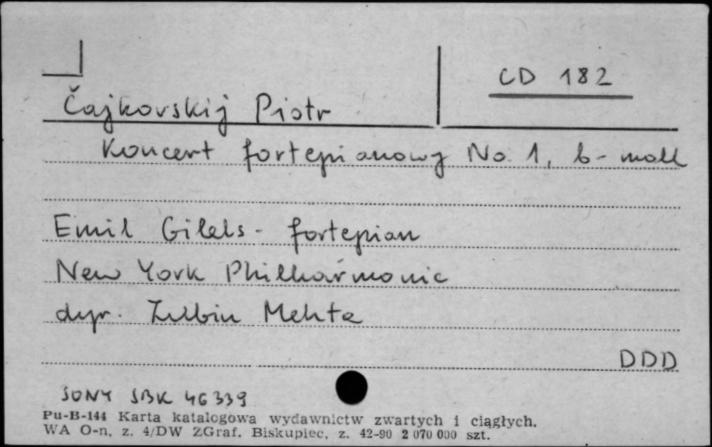 CD 182
Čajkovskij Piotr
Koncert fortepianowy No. 1, b-moll
Emil Gilels - fortepian
New York Philharmonic
dyr. Zubin Mehta
DDD
SONY SBK 46339
Pu-B-144 Karta katalogowa wydawnictw zwartych i ciągłych.
WA O-n, z. 4/DW ZGraf. Biskupiec, z. 42-90 2 070 000 szt.